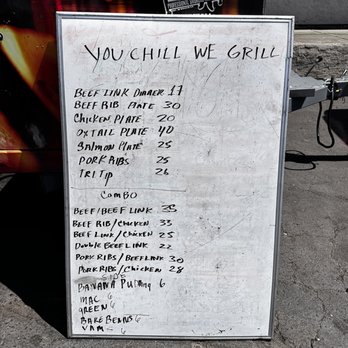 YOU CHILL WE GRILL
BEEF LINK DINNER 17
BEEF RIB PLATE 30
CHICKEN PLATE 20
OXTAIL PLATE 40
SALMON PLATE 25
PORK RIBS 25
TRI Tip 26
COMBO
BEEF/BEEF LINK 35
BEEF RIB/CHICKEN 33
BEEF LINK/CHICKEN 25
Double BEEF LINK 22
PORK RIBS/BEEF LINK 30
PORK RIBS/CHICKEN 28
SIDE
BANANA PUDDING 6
MAC 6
GREEN 6
BAKE BEANS 6
YAM 6